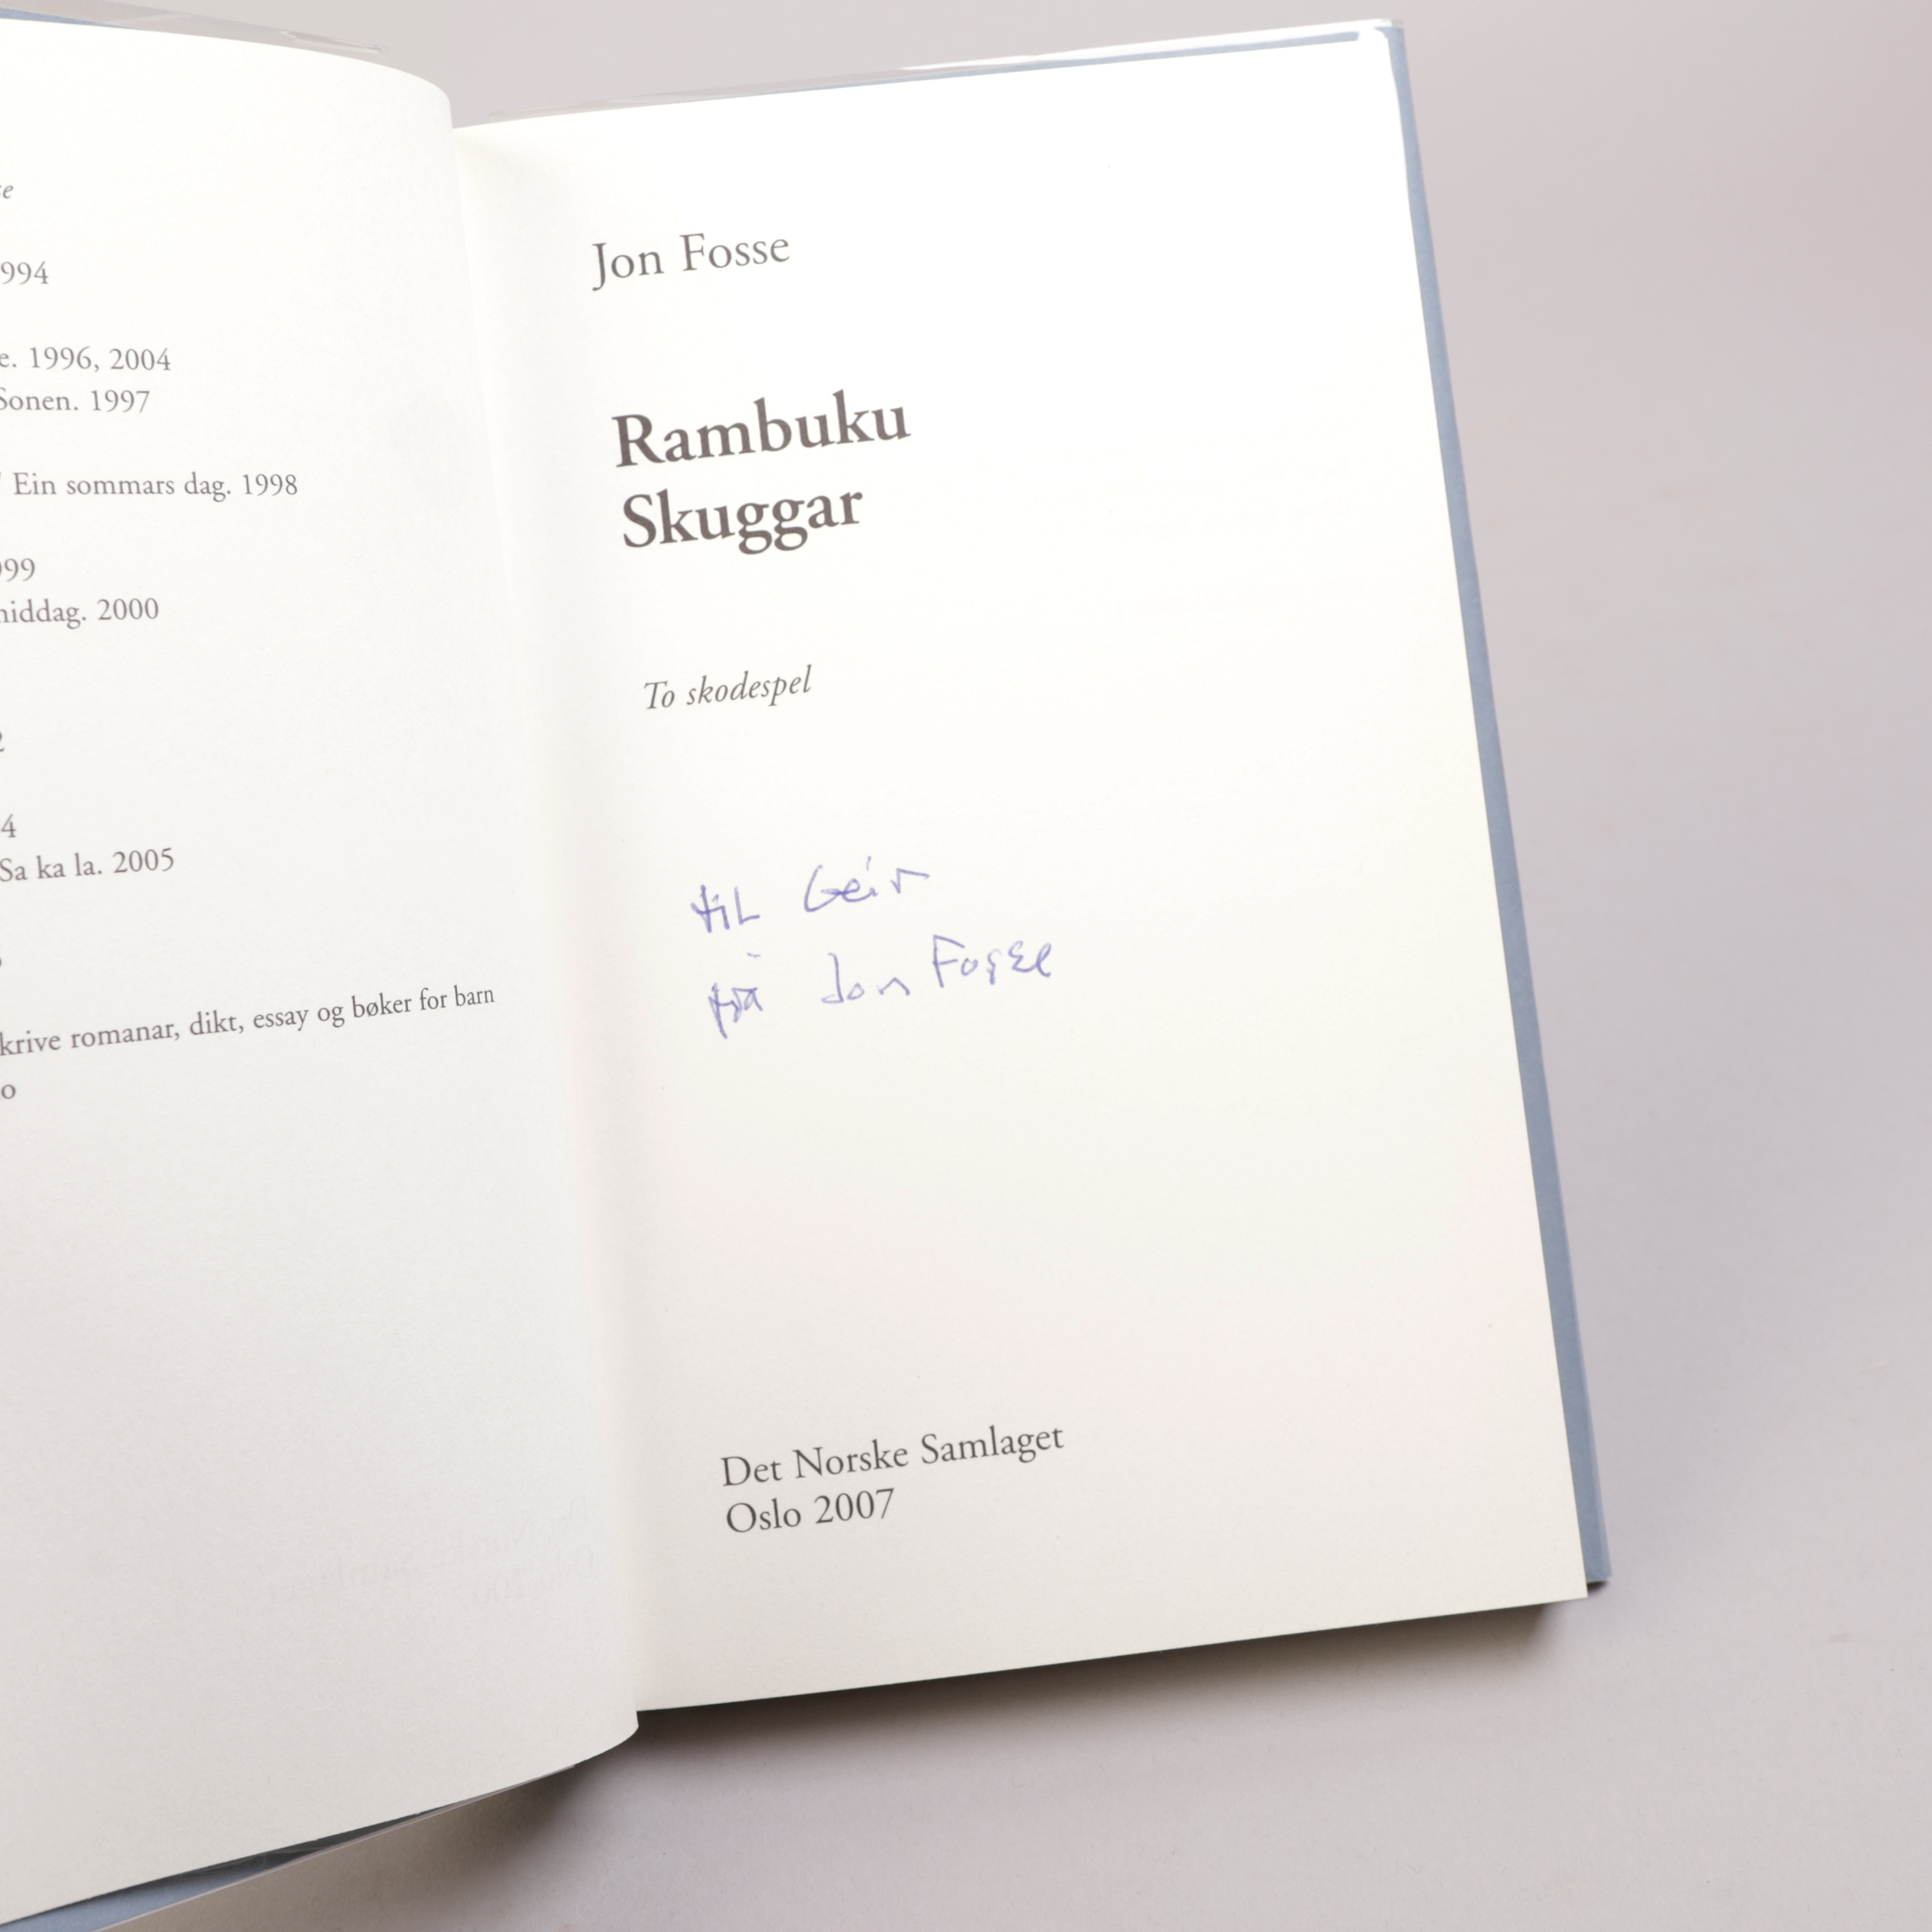 e
994
e. 1996, 2004
Sonen. 1997
Ein sommars dag. 1998
99
middag. 2000
2
4
Sa ka la. 2005
krive romanar, dikt, essay og bøker for barn
o
Jon Fosse
Rambuku
Skuggar
To skodespel
til Geir
frå Jon Fosse
Det Norske Samlaget
Oslo 2007